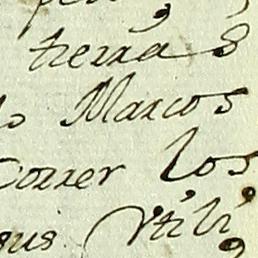 tierras
Marcos
Correr los
sus Vtili